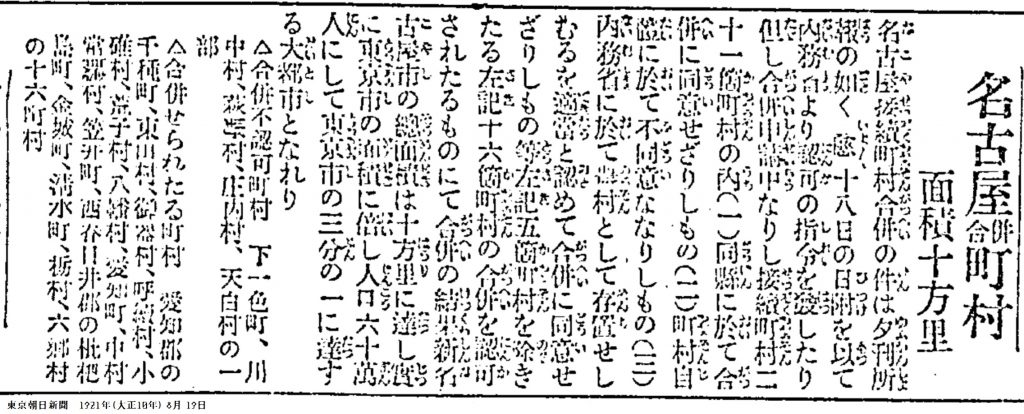 名古屋合併町村
面積十方里
名古屋接續町村合併の件は夕刊所
報の如く愈十八日の日附を以て
内務省より認可の指令を發したり
但し合併申請中なりし接續町村二
十一箇町村の内(一)同縣に於て合
併に同意せざりしもの(二)町村自
體に於て不同意ななりしもの(三)
内務省に於て農村として存置せし
むるを適當と認めて合併に同意せ
ざりしもの等左記五箇町村を除き
たる左記十六箇町村の合併を認可
されたるものにて合併の結果新名
古屋市の總面積は十方里に達し
に東京市の面積に倍し人口六十萬
人にして東京市の三分の一に達す
る大都市となれり
△合併不認可町村 下一色町、川
中村、萩野村、庄内村、天白村の一
部
△合併せられたる町村 愛知郡の
千種町、東山村、御器所村、呼續町、小
碓村、荒子村、八幡村、愛知町、中村
常磐村、笠寺村、西春日井郡の枇杷
島町、金城町、清水町、杉村、六郷村
の十六町村
東京朝日新聞 1921年(大正10年) 8月19日